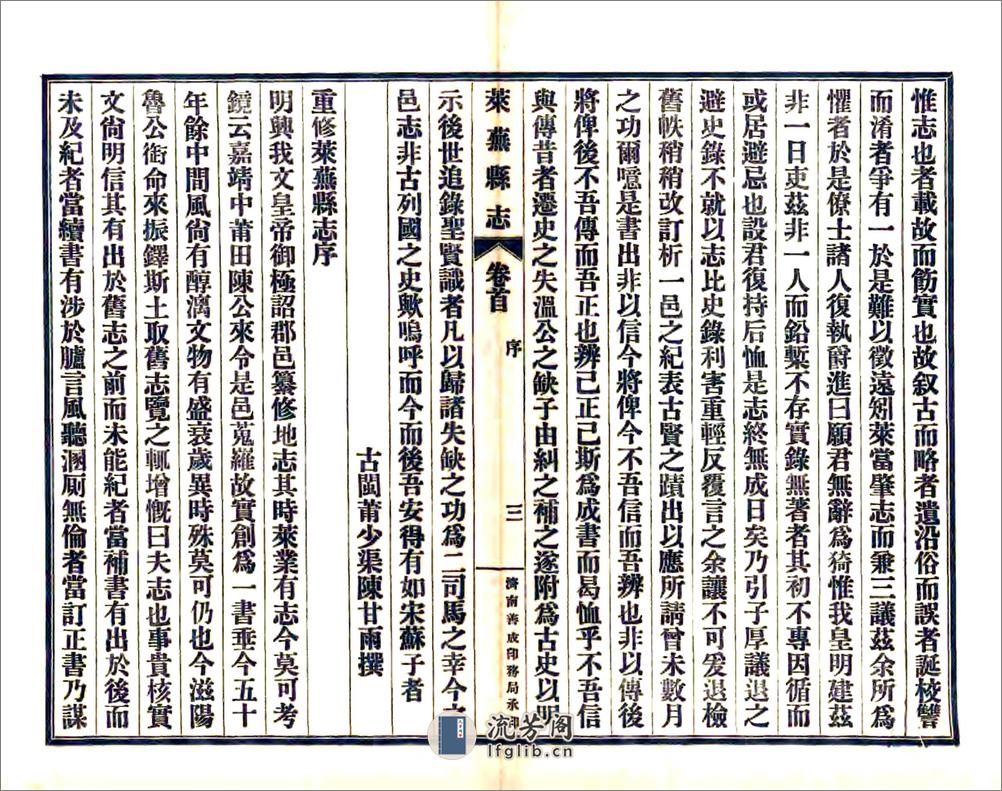 惟志也者載故而筋實也故叙古而略者遺沿俗而誤者誕校讐
而淆者爭有一於是難以徵遠矧萊當肇志而兼三議茲余所爲
懼者於是僚士諸人復執爵進曰願君無辭爲猗惟我皇明建茲
非一日吏茲非一人而鉛槧不存實錄無著者其初不專因循而
或居避忌也設君復持后恤是志終無成日矣乃引子厚議退之
避史錄不就以志比史錄利害重輕反覆言之余讓不可爰退檢
舊帙稍稍改訂析一邑之紀表古賢之蹟出以應所請曾未數月
之功爾噫是書出非以信今將俾今不吾信而吾辨也非以傳後
將俾後不吾傳而吾正也辨己正己斯爲成書而曷恤乎不吾信
與傳昔者遷史之失溫公之缺子由糾之補之遂附爲古史以明
萊蕪縣志
卷首
序
三
濟南善成印務局承印
示後世追錄聖賢識者凡以歸諸失缺之功爲二司馬之幸今之
邑志非古列國之史歟嗚呼而今而後吾安得有如宋蘇子者
古閩莆少渠陳甘雨撰
重修萊蕪縣志序
明興我文皇帝御極詔郡邑纂修地志其時萊業有志今莫可考
鏡云嘉靖中莆田陳公來令是邑蒐羅故實創爲一書垂今五十
年餘中間風尙有醇漓文物有盛衰歲異時殊莫可仍也今滋陽
魯公銜命來振鐸斯土取舊志覽之輒增慨曰夫志也事貴核實
文尙明信其有出於舊志之前而未能紀者當補書有出於後而
未及紀者當續書有涉於臚言風聽溷厠無倫者當訂正書乃謀
流芳阁
lfglib.cn